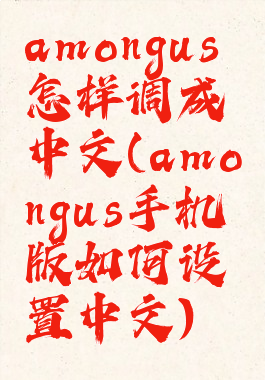 amongus
怎样调成
中文(amo
ngus手机
版如何设
置中文)